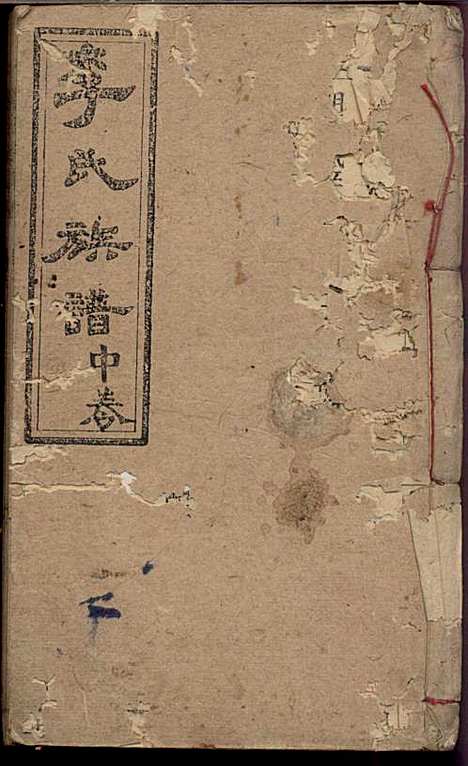 李氏族譜中卷
月